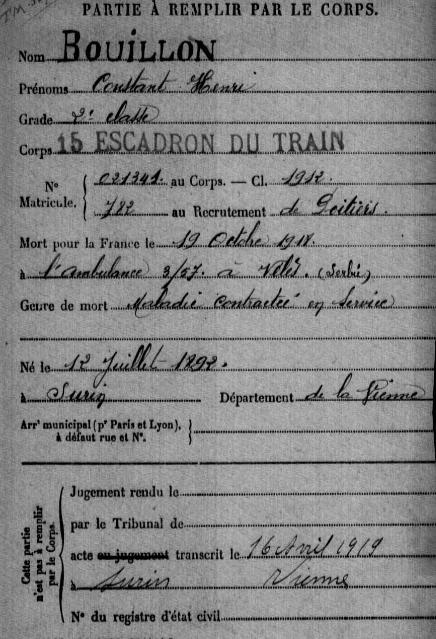 PARTIE À REMPLIR PAR LE CORPS.
Nom BOUILLON
Prénoms Constant Henri
Grade 2e classe
Corps 15 ESCADRON DU TRAIN
No Matricule. 021341 au Corps. — Cl. 1912
782 au Recrutement de Poitiers.
Mort pour la France le 19 Octbre 1918.
à l'ambulance 3/57. à Vélès. (Serbie)
Genre de mort Maladie contractée en service
Né le 12 Juillet 1892.
à Surin Département de la Vienne
Arrt municipal (pr Paris et Lyon),
à défaut rue et No.
Cette partie n'est pas à remplir par le Corps.
Jugement rendu le
par le Tribunal de
acte ou jugement transcrit le 16 Avril 1919
à Surin Vienne
No du registre d'état civil